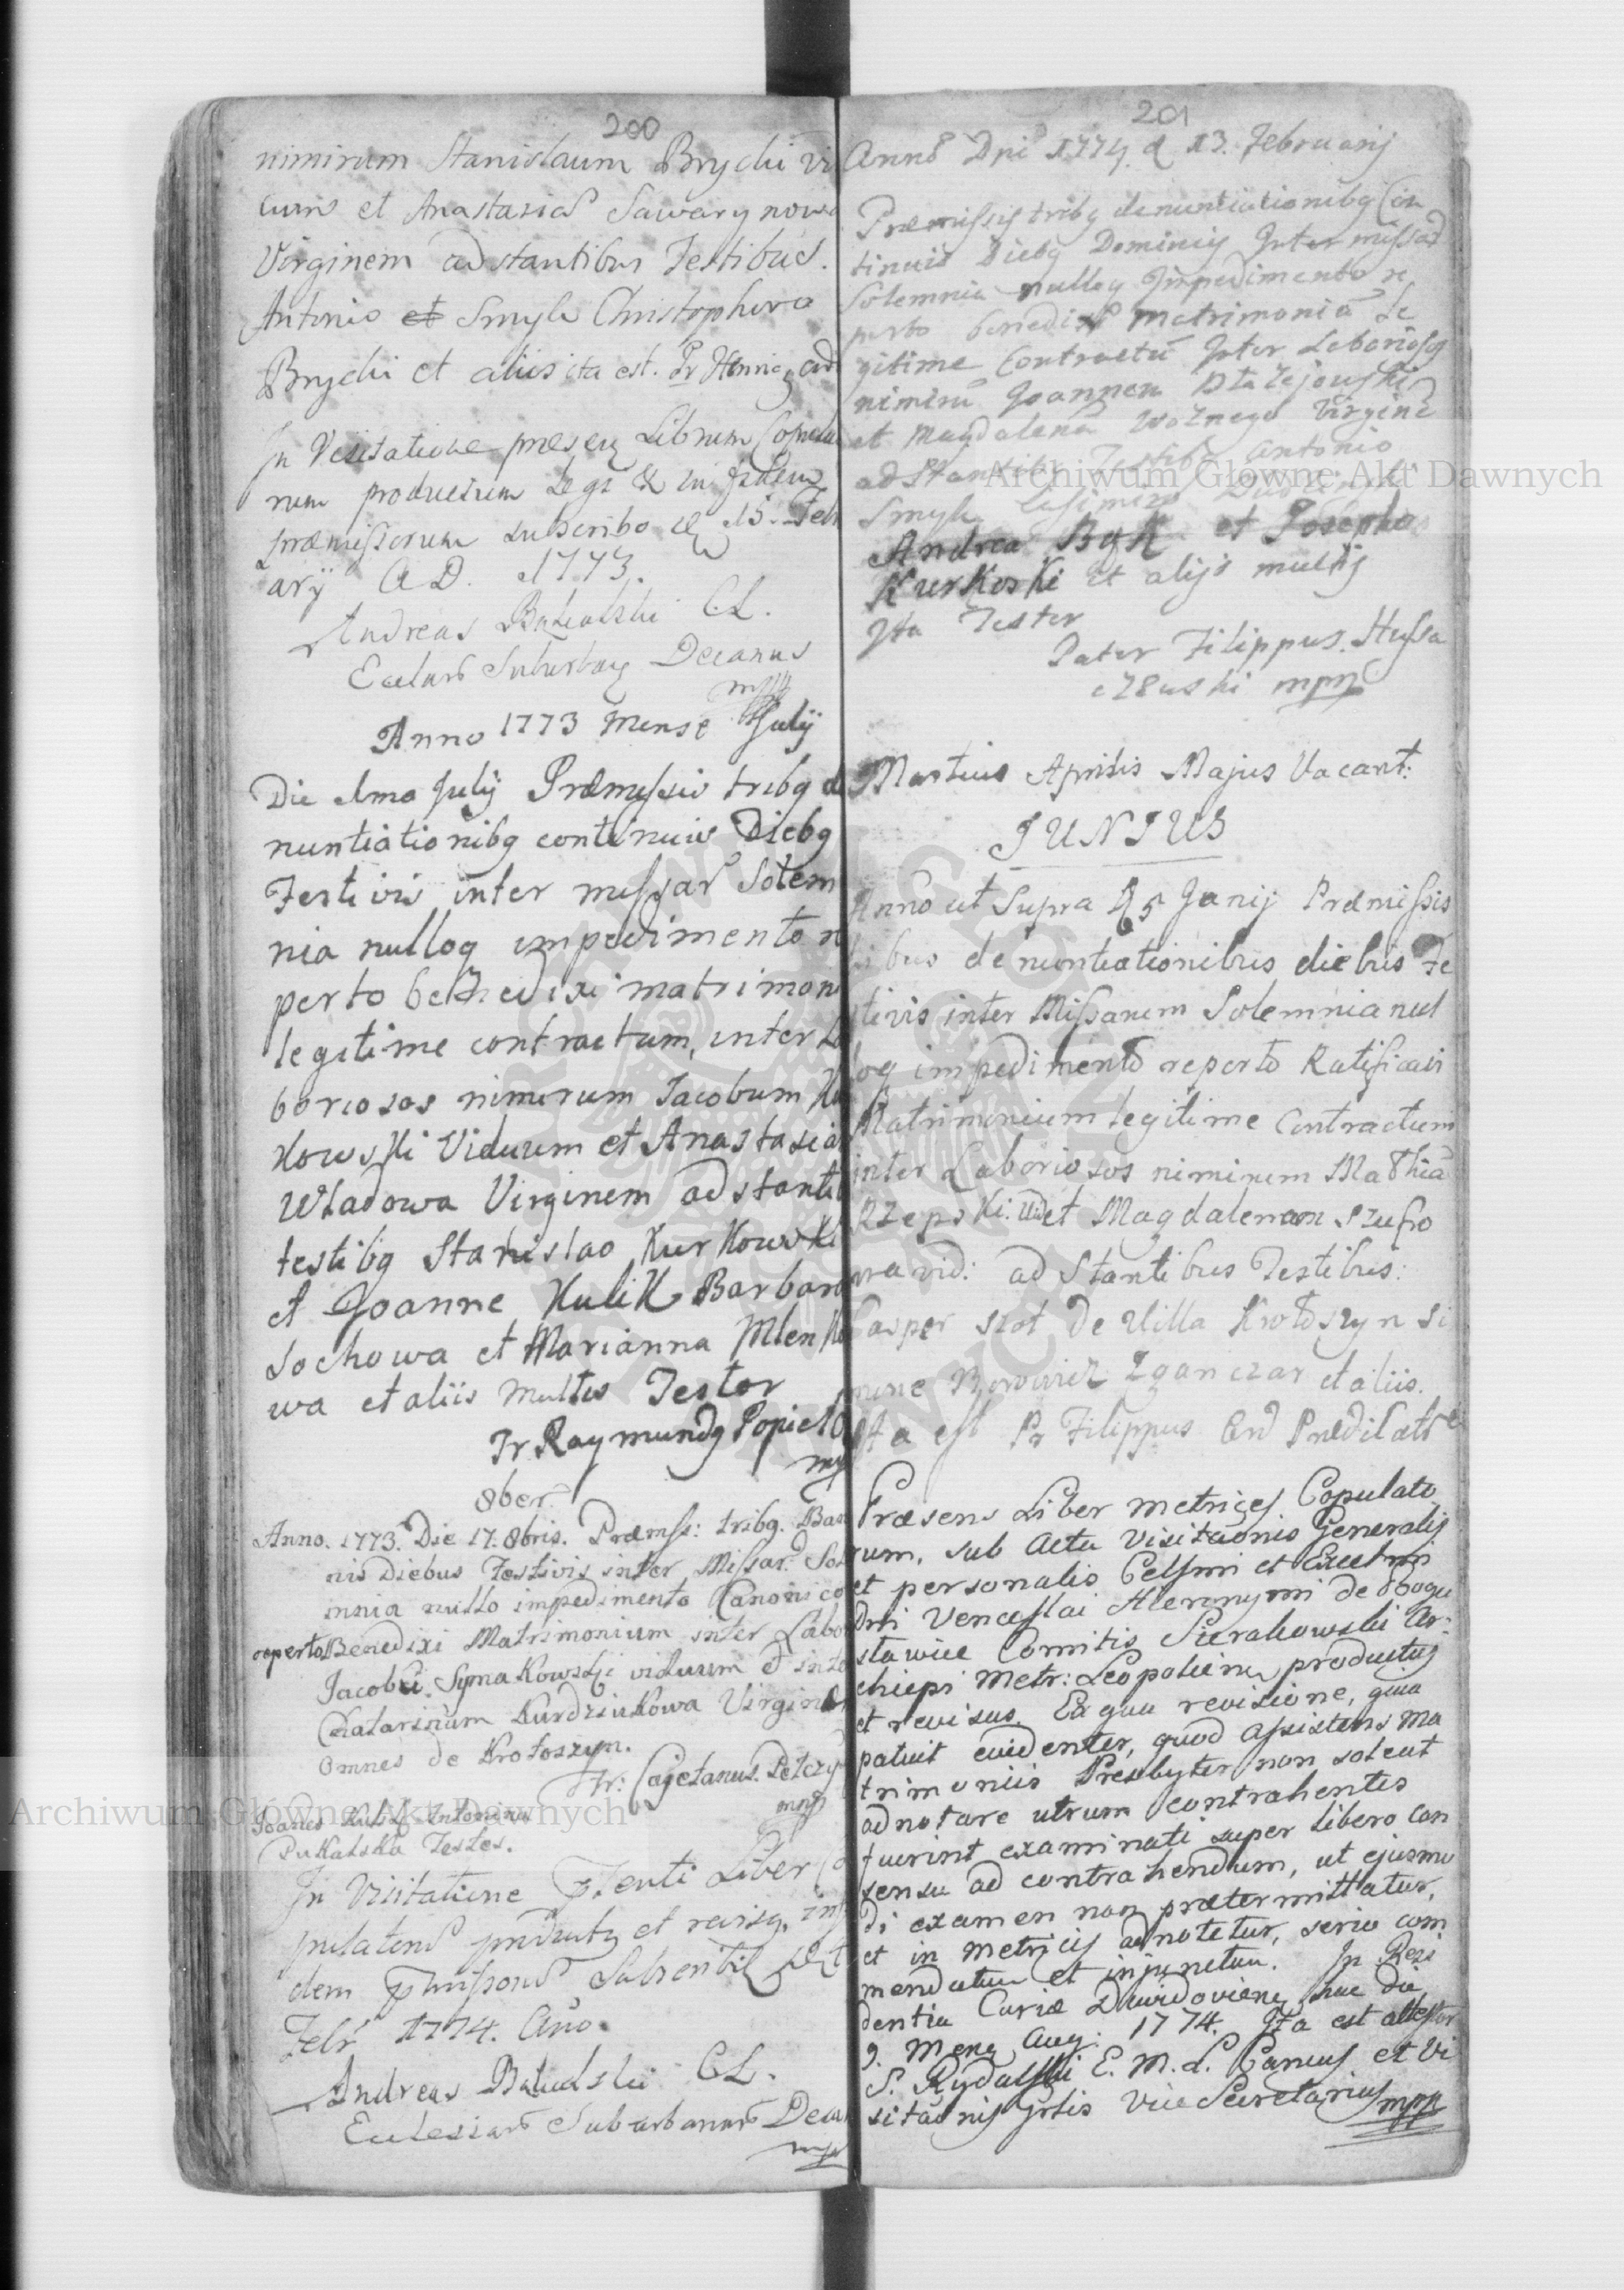 200
nimirum Stanislaum Brychi vi
cum et Anastasia Sawarynowa
Virginem adstantibus Testibus.
Antonio et Smyk Christophoro
Brychi et aliis ita est. Pr
In Visitatione Librum Copula
rum productum Legi & in fidem
præmissorum subscribo 15. Febr
arij A D. 1773.
Andreas CL.
Decanus
mpp
Anno 1773 Mense Julij
Die Julij Præmissis tribq de
nuntiationibq continuis Diebq
Festivis inter missar Solem
nia nulloq impedimento re
perto benedixi matrimoni
legitime contractum, inter La
boriosos nimirum Jacobum
kowski Viduum et Anastasia
Wladowa Virginem adstanti
testibq Stanislao Kurkowski
et Joanne Kulik Barbara
Sochowa et Marianna Mlenko
wa et aliis multis Testor
Fr Raymundq Popiel
mpp
8ber.
Anno. 1773. Die 17. 8bris. Præmss: tribq. Ban
nis Diebus Festivis inter Missar. Sol
innia nullo impedimento Canonico
reperto Benedixi Matrimonium inter Labo
Jacobū. Symakowski viduum et inte
Catarinam Kurdziukowa Virginem
Omnes de Krotoszyn.
Fr: Cajetanus. Pelczy
mpp
Joanes Kulik Antonina
Pukalska Testes.
In Visitatione Liber Co
et revisq. in fi
dem
Febr 1774. Ano.
Andreas CL.
Ecclesiar Suburbanar Decan
mpp
201
Anno Dni 1774. d 13. Februarij
Præmissis tribq denuntiationibq Con
tinuis Diebq Dominicis Inter missar
Solemnia nulloq Impedimento re
perto benedixi matrimoniū Le
gitime Contractū Inter Laboriosos
nimirū Joannem Błażejowski
et Magdalenā Woznego Virginē
adstantibq Testibq Antonio
Smyk
Andrea Bąk et Josepho
Kurkoski et alijs multis
Ita Testor
Pater Filippus. Hussa
czewski mpp
Martius Aprilis Majus Vacant:
JUNIUS
Anno ut Supra d 5 Junij Præmissis
tribus denuntiationibus diebus Fe
stivis inter Missarum Solemnia nul
loq impedimento reperto Ratificavi
Matrimonium legitime Contractum
inter Laboriosos nimirum Mathiā
Rzepski. vid et Magdalenam Szufro
wa vid: ad Stantibus Testibus:
Casper szot de Villa Krotoszyn Si
mone Borowicz Zganczar et aliis.
Ita est Pr Filippus Ord Prædicat
Præsens Liber metrices Copulato
rum, sub Actu Visitationis Generalis
et personalis Celsmi et Excelmi
Dni Venceslai Hieronymi de Bogu
sławice Comitis Sierakowski Ar:
chiepi Metr: Leopolien productus
et revisus. Ea qua revisione, quia
patuit evidenter, quod assistens Ma
trimoniis Presbyter non soleat
adnotare utrum contrahentes
fuerint examinati super libero con
sensu ad contrahendum, ut ejusmo
di examen non prætermittatur,
et in metricis adnotetur, serio com
mendatum et injunctum. In Resi
dentia Curiæ Dawidoviene hac die
9. Mens Aug: 1774. Ita est attestor
S. Rydulski E. M. L. Cancus et Vi
sitaonis Gnlis Vice Secretarius mpp
Archiwum Główne Akt Dawnych
Archiwum Główne Akt Dawnych